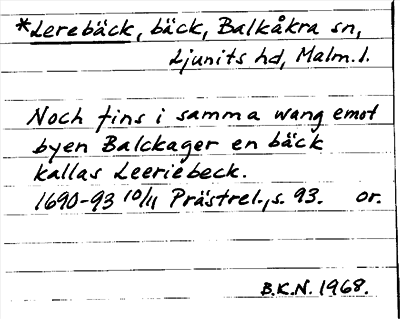 *Lerebäck, bäck, Balkåkra sn,
Ljunits hd, Malm.l.
Noch fins i samma wang emot
byen Balckager en bäck
kallas Leeriebeck.
1690-93 10/11 Prästrel., s. 93. or.
B.K.N. 1968.